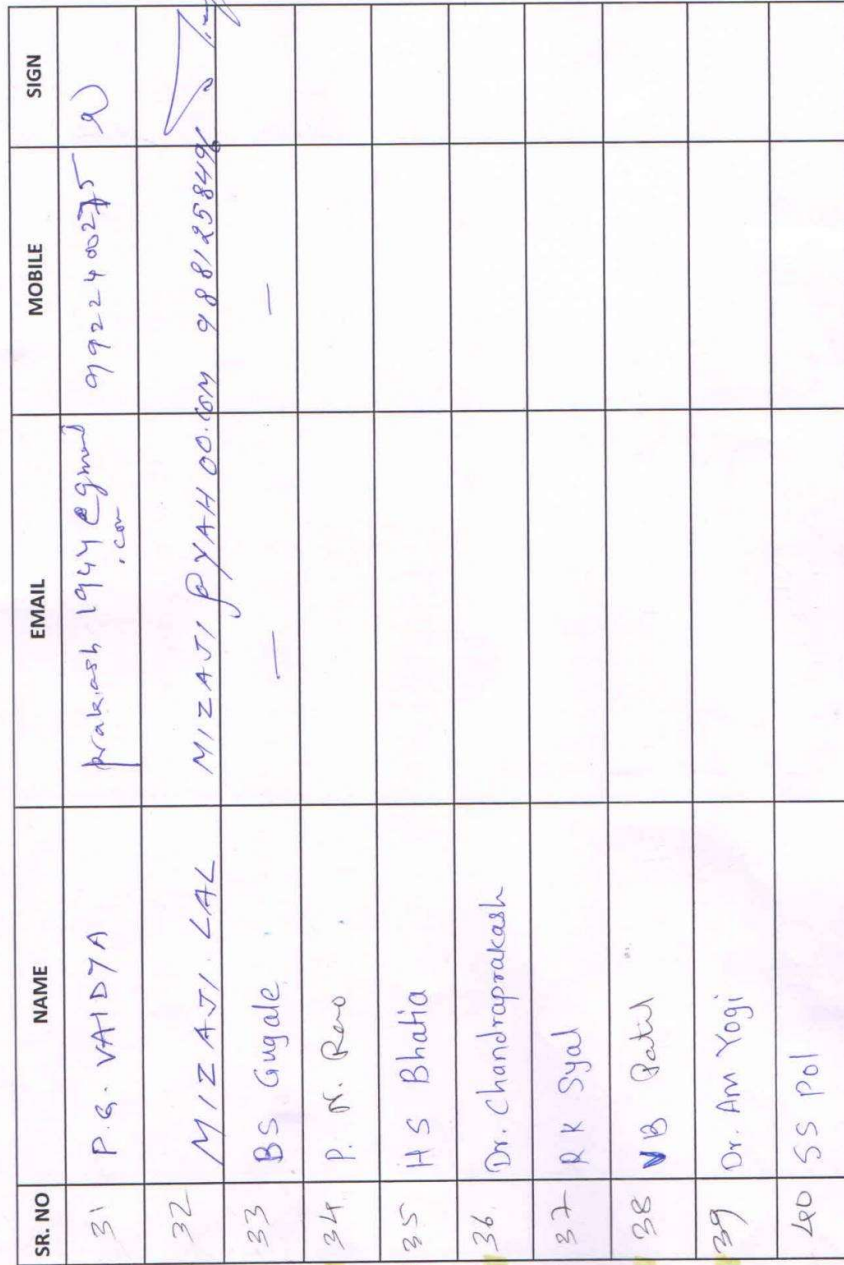 SR. NO NAME EMAIL MOBILE SIGN
31 P.G. VAIDYA prakash1944@gmail
.com 9922400275
32 MIZAJI LAL MIZAJI@YAHOO.COM 9881258496
33 BS Gugale — —
34 P. N. Rao
35 HS Bhatia
36 Dr. Chandraprakash
37 RK Syal
38 VB Patil
39 Dr. Am Yogi
40 SS Pol